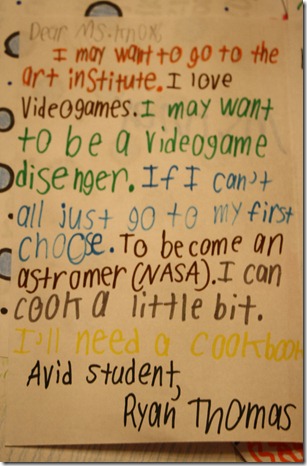 Dear Ms. Knox
I may want to go to the
art institute. I love
Videogames. I may want
to be a videogame
disenger. If I can't
all just go to my first
choose. To become an
astromer (NASA). I can
cook a little bit.
I'll need a cookbook
Avid student,
Ryan Thomas